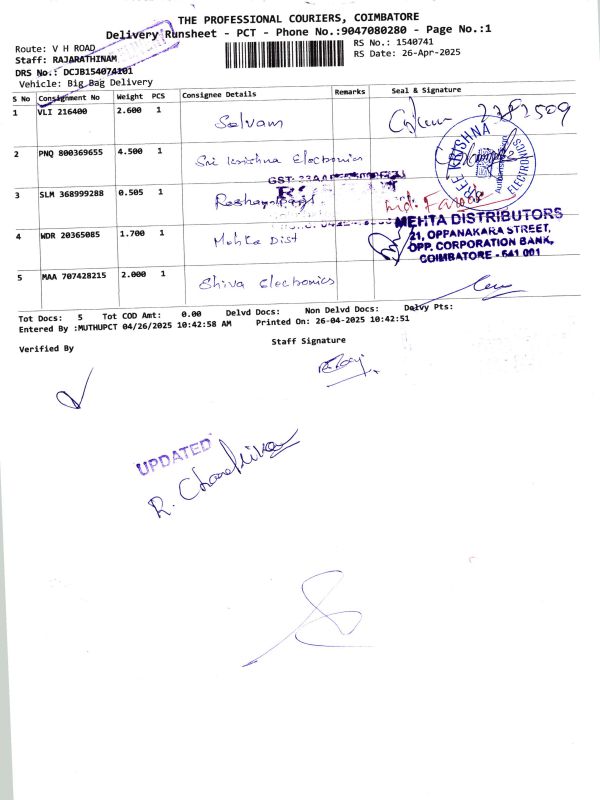 THE PROFESSIONAL COURIERS, COIMBATORE
Delivery Runsheet - PCT - Phone No.:9047080280 - Page No.:1
Route: V H ROAD
RS No.: 1540741
Staff: RAJARATHINAM
RS Date: 26-Apr-2025
DRS No.: DCJB154074101
Vehicle: Big Bag Delivery
S No Consignment No Weight PCS Consignee Details Remarks Seal & Signature
1 VLI 216400 2.600 1 Selvam
2 PNQ 800369655 4.500 1 Sri Krishna Electronics
SREE KRISHNA ELECTRONICS
3 SLM 368999288 0.505 1
4 WDR 20365085 1.700 1 Mehta Dist
MEHTA DISTRIBUTORS
21, OPPANAKARA STREET,
OPP. CORPORATION BANK,
COIMBATORE - 641 001
5 MAA 707428215 2.000 1 Shiva Electronics
Tot Docs: 5 Tot COD Amt: 0.00 Delvd Docs: Non Delvd Docs: Delvy Pts:
Entered By :MUTHUPCT 04/26/2025 10:42:58 AM Printed On: 26-04-2025 10:42:51
Verified By
Staff Signature
UPDATED